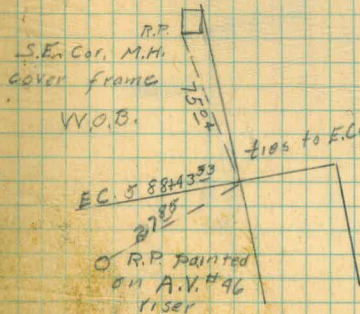 R.P.
S.E. Cor. M.H.
cover frame
75.04
W.O.B.
ties to E.C.
E.C. 5 88+43.53
27.85
R.P. painted
on A.V. #46
riser